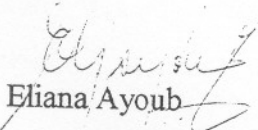 Eliana Ayoub